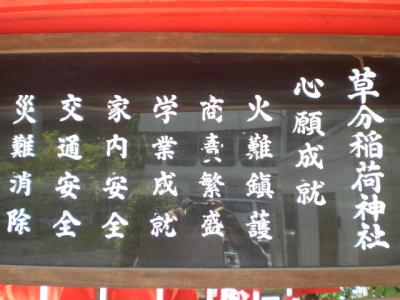 草分稲荷神社
心願成就
火難鎮護
商喜繁盛
学業成就
家内安全
交通安全
災難消除